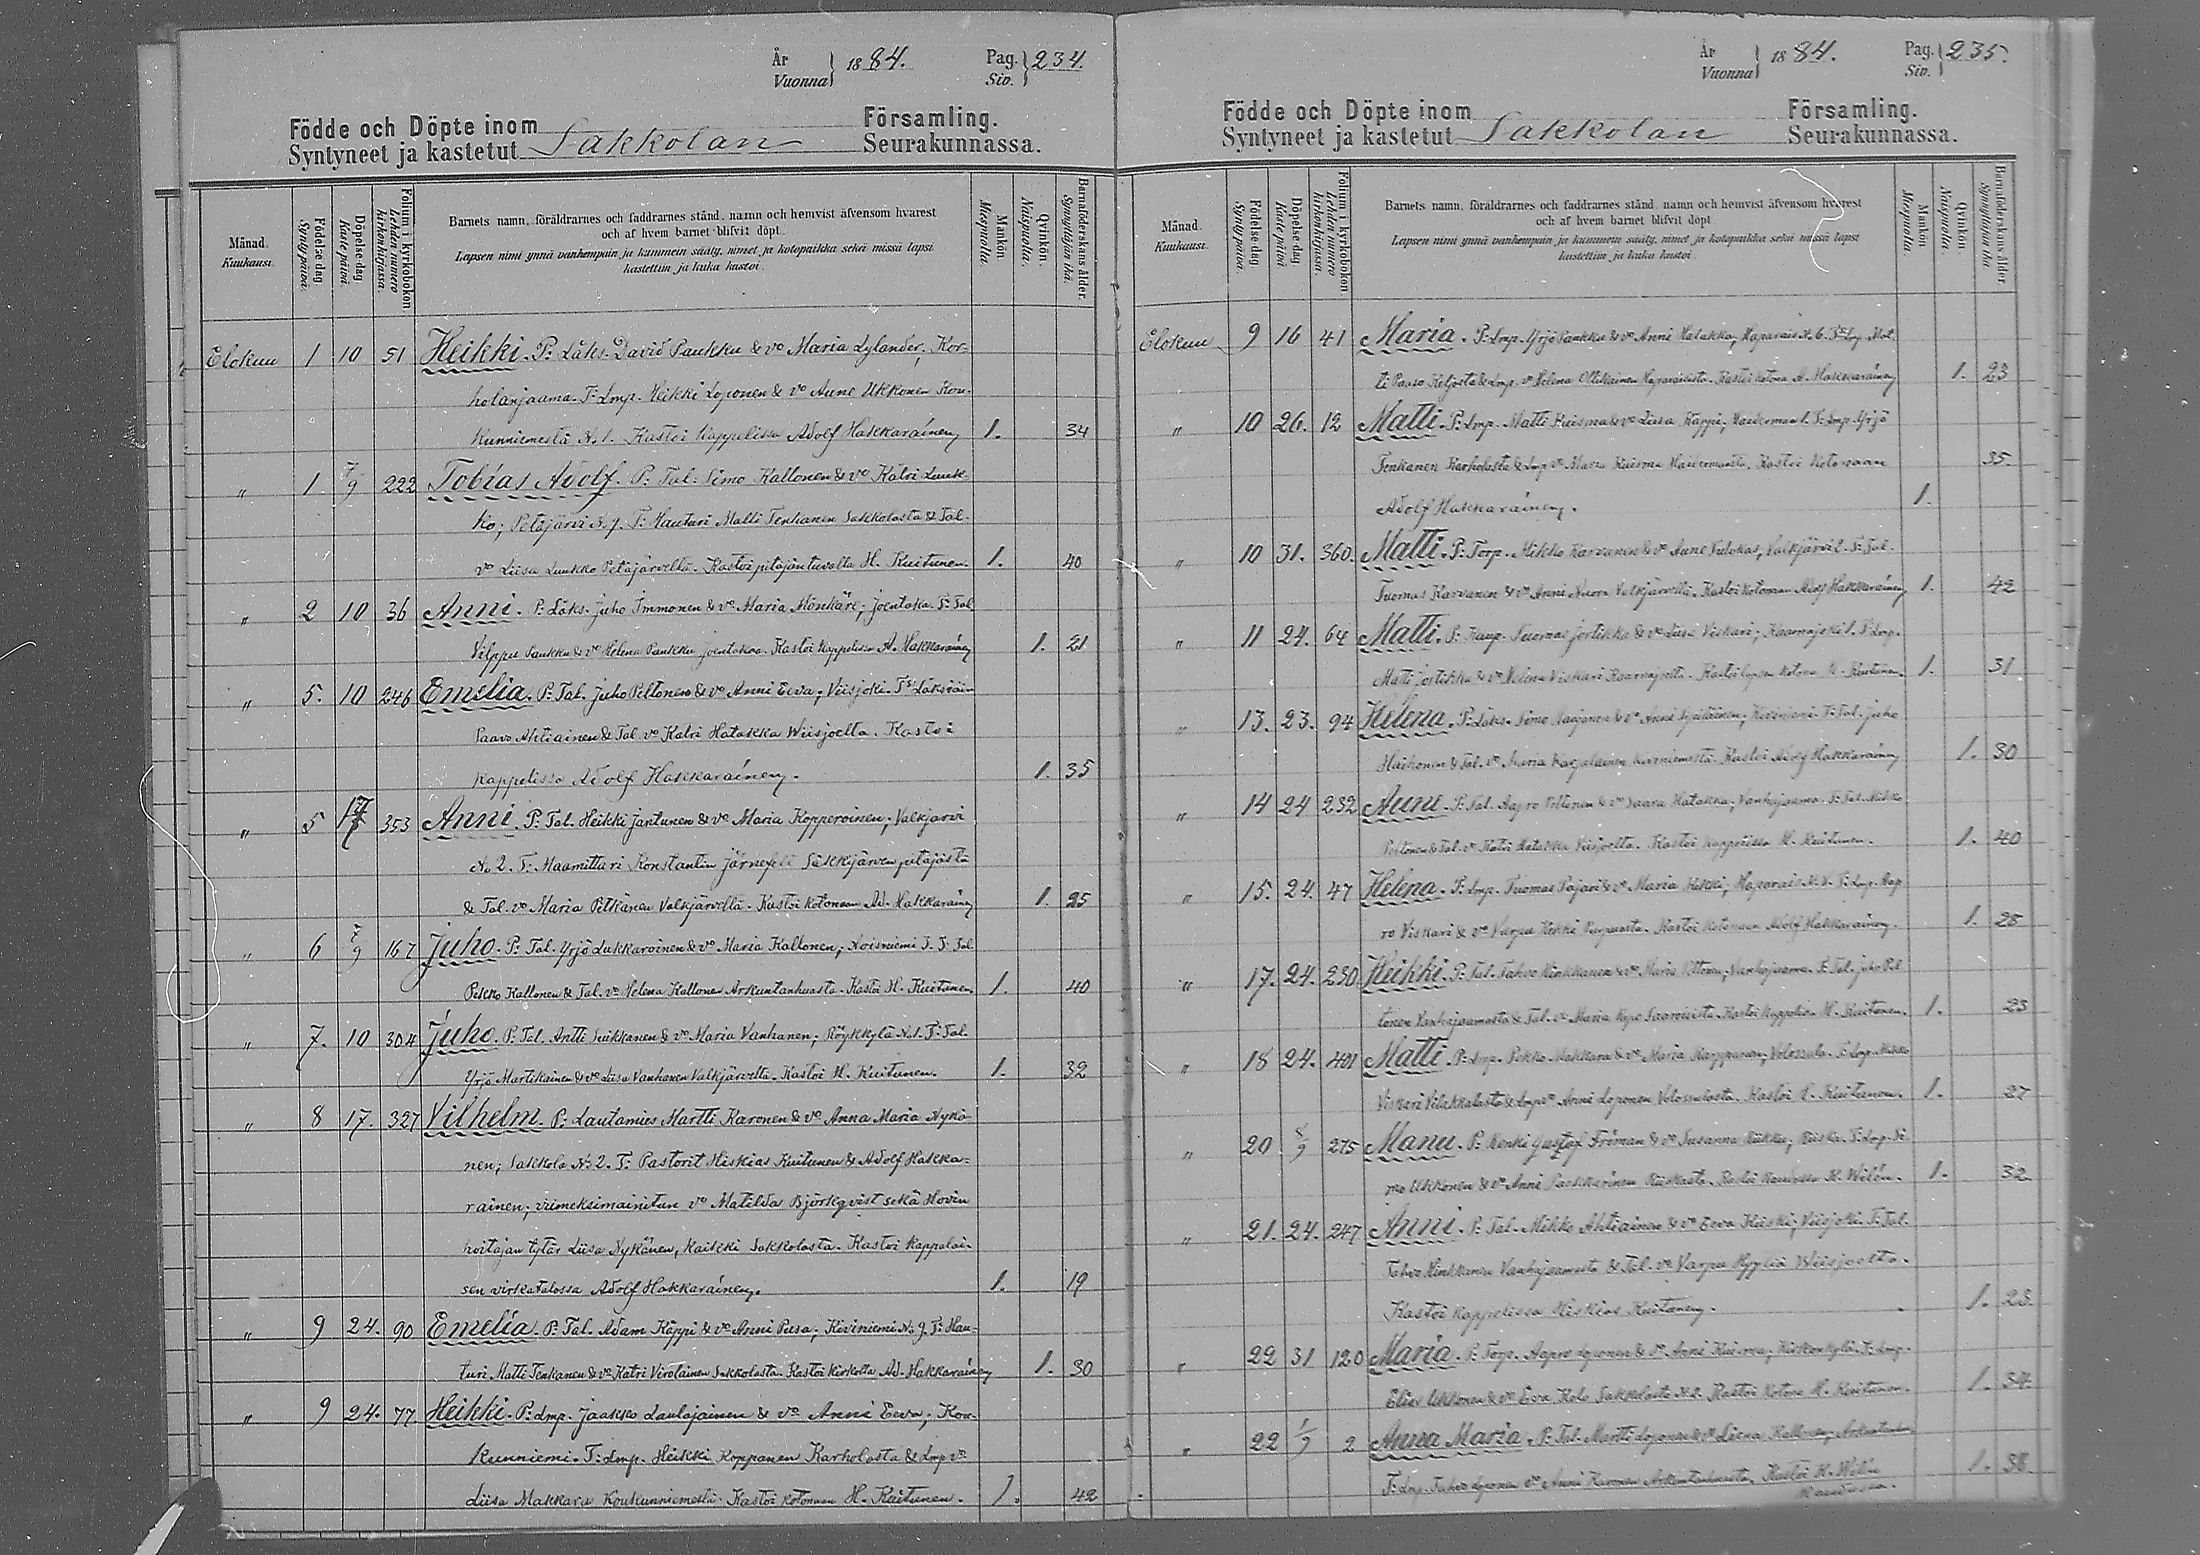 År Vuonna } 1884. Pag. Siv. } 234.
Födde och Döpte inom Församling.
Syntyneet ja kastetut Sakkolan Seurakunnassa.
Månad. Kuukausi. Födelse dag. Synty päivä. Döpelse dag. Kaste päivä. Folium i kyrkoboken. Lehden numero kirkonkirjassa. Barnets namn, föräldrarnes och faddrarnes stånd, namn och hemvist äfvensom hvarest Mankön. Miespuolia. Qvinkön. Naispuolia. Barnaföderskans ålder. Synnyttäjän ikä.
och af hvem barnet blifvit döpt.
Lapsen nimi ynnä vanhempain ja kummein sääty, nimet ja kotopaikka sekä missä lapsi
kastettiin ja kuka kastoi.
Elokuu 1 10 51 Heikki. P: Läks. David Paukku & vo Maria Lylander, Kor-
holanjaama. T: Lmp. Heikki Loponen & vo Anne Ukkonen Kou-
kunniemestä N:1. Kastoi Kappelissa Adolf Hakkaráinen 1. 34
" 1 7/9 222 Tobias Adolf. P: Tal. Simo Kallonen & vo Katri Luuk-
ko; Petäjärvi N:7. T: Hauturi Matti Tenkanen Sakkolasta & Tal.
vo Liisa Luukko Petäjärveltä. Kastoi pitäjäntuvalla H. Kuitunen. 1. 40
" 2 10 36 Anni. P: Läks. Juho Immonen & vo Maria Mönkäre; Joentaka. T: Tal
Vilppu Paukku & vo Helena Paukku Joentakaa. Kastoi Kappelissa A. Hakkaráinen 1. 21
" 5. 10 246 Emelia. P: Tal. Juho Peltonen & vo Anni Eeva; Viisjoki. T: Läksiäin
Paavo Ahtiainen & Tal. vo Katri Hatakka Wiisjoelta. Kastoi
Kappelissa Adolf Hakkaráinen. 1. 35
" 5 353 Anni. P: Tal. Heikki Jantunen & vo Maria Kopperoinen; Valkjärvi
No 2. T: Maamittari Konstantin Järnefelt Säkkijärven pitäjästä
& Tal. vo Maria Pitkänen Valkjärveltä. Kastoi kotonaan Ad. Hakkaráinen 1. 25
" 6 7/9 167 Juho. P: Tal. Yrjö Lukkaroinen & vo Maria Kallonen; Noisniemi 3. T: Tal
Pekko Kallonen & Tal. vo Helena Kallonen Arkuntanhuasta. Kastoi H. Kuitunen 1. 40
" 7. 10 304 Juho. P: Tal. Antti Suikkanen & vo Maria Vanhanen; Röykkylä N:1. T: Tal.
Yrjö Martikainen & vo Liisa Vanhanen Valkjärveltä. Kastoi H. Kuitunen. 1. 32
" 8 17. 327 Vilhelm. P: Lautamies Martti Karonen & vo Anna Maria Nykä-
nen; Sakkola No 2. T: Pastorit Hiskias Kuitunen & Adolf Hakka-
rainen; viimeksimainitun vo Matilda Björkqvist sekä Hovin
hoitajan tytär Liisa Nykänen, kaikki Sakkolasta. Kastoi Kappalai-
sen virkatalossa Adolf Hakkaráinen. 1. 19
" 9 24. 90 Emelia. P: Tal. Adam Käppi & vo Anni Pusa; Kiviniemi No 9. T: Hau-
turi Matti Tenkanen & vo Katri Virolainen Sakkolasta. Kastoi kirkolla Ad. Hakkaráinen 1. 30
" 9 24. 77 Heikki. P: Lmp. Jaakko Laulajainen & vo Anni Eeva; Kou-
kunniemi. T: Lmp. Heikki Koppanen Karholasta & Lmp vo
Liisa Makkara Koukunniemestä. Kastoi kotonaan H. Kuitunen. 1. 42
År Vuonna } 1884. Pag. Siv. } 235.
Födde och Döpte inom Församling.
Syntyneet ja kastetut Sakkolan Seurakunnassa.
Månad. Kuukausi. Födelse dag. Synty päivä. Döpelse dag. Kaste päivä. Folium i kyrkoboken. Lehden numero kirkonkirjassa. Barnets namn, föräldrarnes och faddrarnes stånd, namn och hemvist äfvensom hvarest Mankön. Miespuolia. Qvinkön. Naispuolia. Barnaföderskans ålder. Synnyttäjän ikä.
och af hvem barnet blifvit döpt.
Lapsen nimi ynnä vanhempain ja kummein sääty, nimet ja kotopaikka sekä missä lapsi
kastettiin ja kuka kastoi.
Elokuu 9 16 41 Maria. P: Lmp. Yrjö Paukku & vo Anni Hatakka, Haparais N:6. T: Lmp. Mat
ti Paaso Keljasta & Lmp. vo Helena Ollikainen Haparaisista. Kastoi kotona A. Hakkaráinen 1. 23
" 10 26. 12 Matti. P: Lmp. Matti Kuisma & vo Liisa Käppi, Haitermaa 1. T: Lmp. Yrjö
Tenkanen Karholasta & Lmp vo Maria Kuisma Haitermaasta. Kastoi kotonaan 35.
Adolf Hakkaráinen. 1.
" 10 31. 360. Matti. P: Torp. Mikko Karvanen & vo Anne Pulakas, Valkjärvi 2. T: Tal.
Tuomas Karvanen & vo Anni Nuora Valkjärveltä. Kastoi kotonaan Adolf Hakkaráinen 1. 42
" 11 24. 64 Matti. P: Kaup. Tuomas Jortikka & vo Liisi Viskari; Kaarnajoki 1. T: Lmp.
Matti Jortikka & vo Helena Viskari Kaarnajoelta. Kastoi lapsen kotona H. Kuitunen. 1. 31
" 13. 23. 94 Helena. P: Läks. Simo & vo Anni; Kiviniemi. T: Tal. Juho
& Tal. vo Maria Karjalainen Kiviniemestä. Kastoi Adolf Hakkaráinen 1. 30
" 14 24 232 Anni. P: Tal. Aapro Peltonen & vo Saara Hatakka; Vanhajaama. T: Tal. Mikko
Peltonen & Tal. vo Katri Hatakka Viisjoelta. Kastoi kappelissa H. Kuitunen. 1. 40
" 15. 24. 47 Helena. P: Lmp. Tuomas Pajari & vo Maria Kekki; Haparais. T: Lmp. Aap
ro Viskari & vo Varpu Kekki. Kastoi kotonaan Adolf Hakkaráinen. 1. 25
" 17. 24. 230 Heikki. P: Tal. Tahvo Kinkkanen & vo Maria; Vanhajaama. T: Tal. Juho Pel
tonen Vanhajaamasta & Tal. vo Maria. Kastoi kappelissa H. Kuitunen. 1. 23
" 18 24. 401 Matti. P: Lmp. Pekko Makkara & vo Maria; Volossula. T: Lmp. Mikko
Viskari & Lmp vo Anni Loponen Volossulasta. Kastoi H. Kuitunen. 1. 27
" 20 8/9 275 Manu. P: Renki Gustaf Friman & vo Susanna Riikku; Riiska. T: Lmp. Si
mo Ukkonen & vo Anni Riiskasta. Kastoi H. Wilén. 1. 32
" 21. 24. 247 Anni. P: Tal. Mikko Ahtiainen & vo Eeva Kiiski; Viisjoki. T: Tal.
Tahvo Kinkkanen Vanhajaamasta & Tal. vo Varpu Wiisjoelta.
Kastoi kappelissa Hiskias Kuitunen. 1. 23.
" 22 31 120 Maria. P: Torp. Aapro Loponen & vo Anni Kuisma; Kirkonkylä. T: Lmp.
Elias Ukkonen & vo Eeva Sakkolasta N:2. Kastoi kotona H. Kuitunen. 1. 34.
" 22 1/9 2 Anna Maria. P: Tal. Martti Loponen & vo Liena Kallonen; Arkuntanhua
T: Lmp. Tahvo Loponen & vo Anni Karonen Arkuntanhuasta. Kastoi H. Wilén 1. 38.